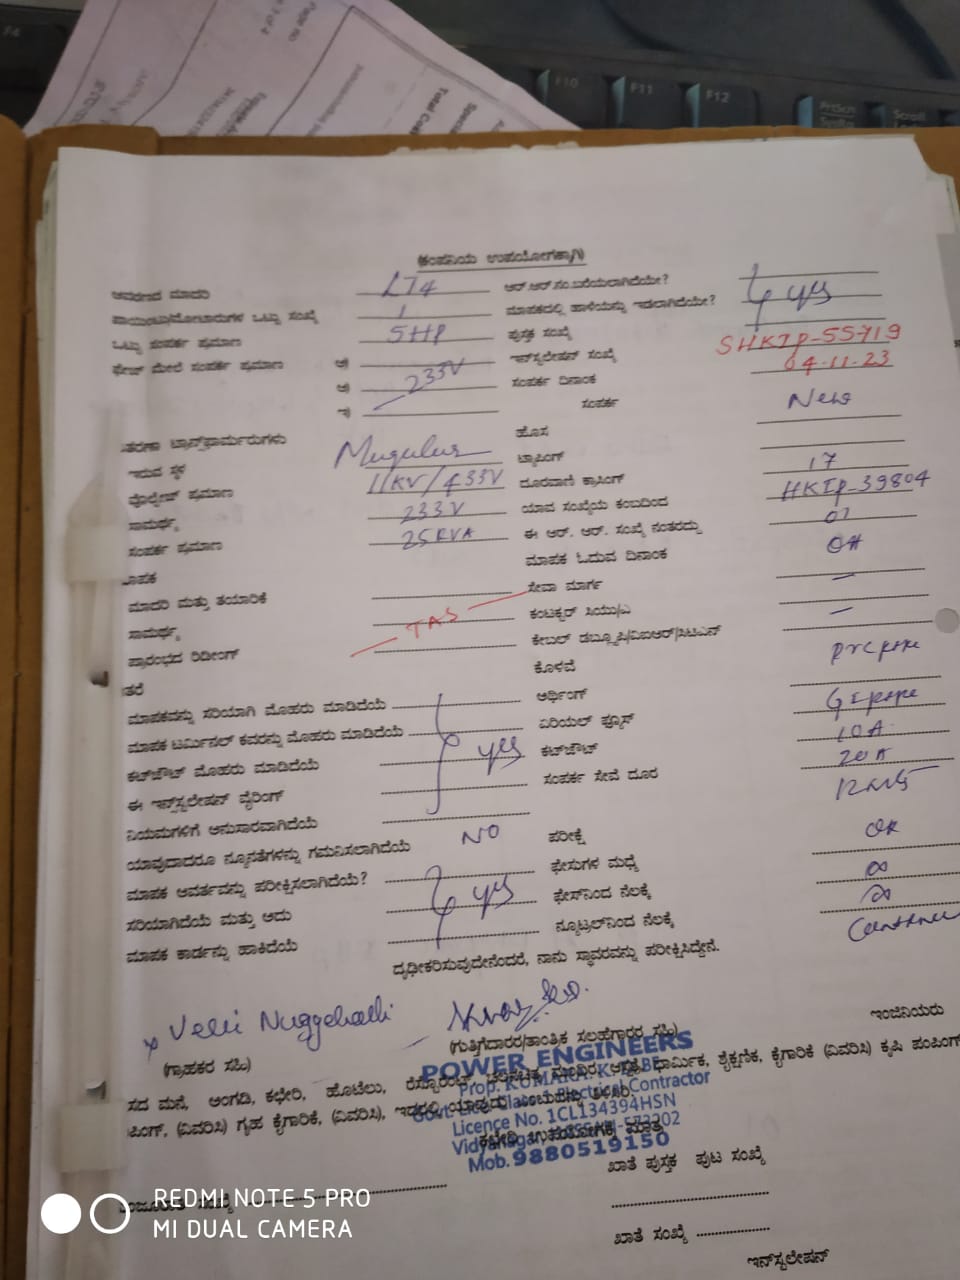 F4
F10
F11
F12
PrtScn
Scroll
Page no
(ಕಂಪನಿಯ ಉಪಯೋಗಕ್ಕಾಗಿ)
ಆವರಣದ ಮಾದರಿ LT4 ಆರ್.ಆರ್.ಸಂ.ಬರೆಯಲಾಗಿದೆಯೇ?
ಪಾಯಿಂಟು/ಮೋಟಾರುಗಳ ಒಟ್ಟು ಸಂಖ್ಯೆ 1 ಮಾಪಕದಲ್ಲಿ ಹಾಳೆಯನ್ನು ಇಡಲಾಗಿದೆಯೇ? yes
ಒಟ್ಟು ಸಂಪರ್ಕ ಪ್ರಮಾಣ 5HP ಪುಸ್ತಕ ಸಂಖ್ಯೆ
ಫೇಜ್ ಮೇಲೆ ಸಂಪರ್ಕ ಪ್ರಮಾಣ ಇನ್‌ಸ್ಟಲೇಷನ್ ಸಂಖ್ಯೆ SHKIP-55719
233V ಸಂಪರ್ಕ ದಿನಾಂಕ 04-11-23
ಸಂಪರ್ಕ New
ತರಣಾ ಟ್ರಾನ್ಸ್‌ಫಾರ್ಮರುಗಳು ಹೊಸ
ಇರುವ ಸ್ಥಳ Mugulur ಟ್ಯಾಪಿಂಗ್
ವೊಲ್ಟೇಜ್ ಪ್ರಮಾಣ 11KV/433V ದೂರವಾಣಿ ಕ್ರಾಸಿಂಗ್ 17
ಸಾಮರ್ಥ್ಯ 233V ಯಾವ ಸಂಖ್ಯೆಯ ಕಂಬದಿಂದ HKIP-39804
ಸಂಪರ್ಕ ಪ್ರಮಾಣ 25KVA ಈ ಆರ್. ಆರ್. ಸಂಖ್ಯೆ ನಂತರದ್ದು 01
ಮಾಪಕ ಮಾಪಕ ಓದುವ ದಿನಾಂಕ OH
ಮಾದರಿ ಮತ್ತು ತಯಾರಿಕೆ ಸೇವಾ ಮಾರ್ಗ —
ಸಾಮರ್ಥ್ಯ TAS ಕಂಟಕ್ಟರ್ ಸಿಯು/ಎ —
ಪ್ರಾರಂಭದ ರಿಡೀಂಗ್ ಕೇಬಲ್ ಡಬ್ಲ್ಯೂಪಿ/ವಿಐಆರ್/ಸಿಟಿಎಸ್
ತರೆ ಕೊಳವೆ PVC pipe
ಮಾಪಕವನ್ನು ಸರಿಯಾಗಿ ಮೊಹರು ಮಾಡಿದೆಯೆ ಅರ್ಥಿಂಗ್ GI pipe
ಮಾಪಕ ಟರ್ಮಿನಲ್ ಕವರನ್ನು ಮೊಹರು ಮಾಡಿದೆಯೆ ಏರಿಯಲ್ ಫ್ಯೂಸ್ 10A
ಕಟ್‌ಔಟ್ ಮೊಹರು ಮಾಡಿದೆಯೆ yes ಕಟ್‌ಔಟ್ 20A
ಈ ಇನ್‌ಸ್ಟಲೇಷನ್ ವೈರಿಂಗ್ ಸಂಪರ್ಕ ಸೇವೆ ದೂರ
ನಿಯಮಗಳಿಗೆ ಅನುಸಾರವಾಗಿದೆಯೆ
ಯಾವುದಾದರೂ ನ್ಯೂನತೆಗಳನ್ನು ಗಮನಿಸಲಾಗಿದೆಯೆ NO ಪರೀಕ್ಷೆ OK
ಮಾಪಕ ಆವರ್ತವನ್ನು ಪರೀಕ್ಷಿಸಲಾಗಿದೆಯೆ? ಫೇಸುಗಳ ಮಧ್ಯೆ ∞
ಸರಿಯಾಗಿದೆಯೆ ಮತ್ತು ಅದು yes ಫೇಸ್‌ನಿಂದ ನೆಲಕ್ಕೆ ∞
ಮಾಪಕ ಕಾರ್ಡನ್ನು ಹಾಕಿದೆಯೆ ನ್ಯೂಟ್ರಲ್‌ನಿಂದ ನೆಲಕ್ಕೆ
ದೃಢೀಕರಿಸುವುದೇನೆಂದರೆ, ನಾನು ಸ್ಥಾವರವನ್ನು ಪರೀಕ್ಷಿಸಿದ್ದೇನೆ.
Nuggehalli
(ಗ್ರಾಹಕರ ಸಹಿ) (ಗುತ್ತಿಗೆದಾರರ/ತಾಂತ್ರಿಕ ಸಲಹೆಗಾರರ ಸಹಿ) ಇಂಜಿನಿಯರು
POWER ENGINEERS
Prop. KUMARA. K.S.
Class-1 Electrical Contractor
Licence No. 1CL134394HSN
Mob. 9880519150
ಸದ ಮನೆ, ಅಂಗಡಿ, ಕಛೇರಿ, ಹೊಟೆಲು, ರೆಸ್ಟೊರೆಂಟ್, ಧಾರ್ಮಿಕ, ಶೈಕ್ಷಣಿಕ, ಕೈಗಾರಿಕೆ (ವಿವರಿಸಿ) ಕೃಷಿ ಪಂಪಿಂಗ್
ಪಿಂಗ್, (ವಿವರಿಸಿ) ಗೃಹ ಕೈಗಾರಿಕೆ, (ವಿವರಿಸಿ), ಇದರಲ್ಲಿ ಯಾವುದು ಎಂಬುದನ್ನು ತಿಳಿಸಿರಿ.
ಕಛೇರಿ ಉಪಯೋಗಕ್ಕೆ ಮಾತ್ರ
ಖಾತೆ ಪುಸ್ತಕ ಪುಟ ಸಂಖ್ಯೆ
ಮಂಜೂರಾತಿ ಸಂಖ್ಯೆ
ಖಾತೆ ಸಂಖ್ಯೆ
ಇನ್‌ಸ್ಟಲೇಷನ್
REDMI NOTE 5 PRO
MI DUAL CAMERA